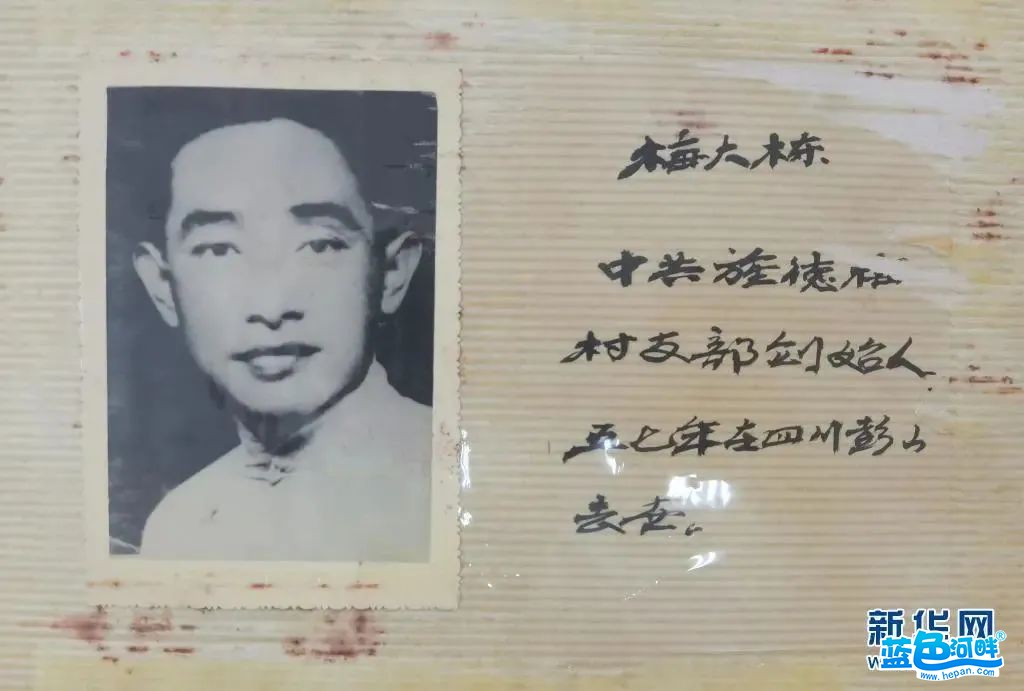 梅大栋
中共旌德
村支部创始人
五七年在四川彭山
去世。
新华网
W
蓝色河畔®
www.hepan.com